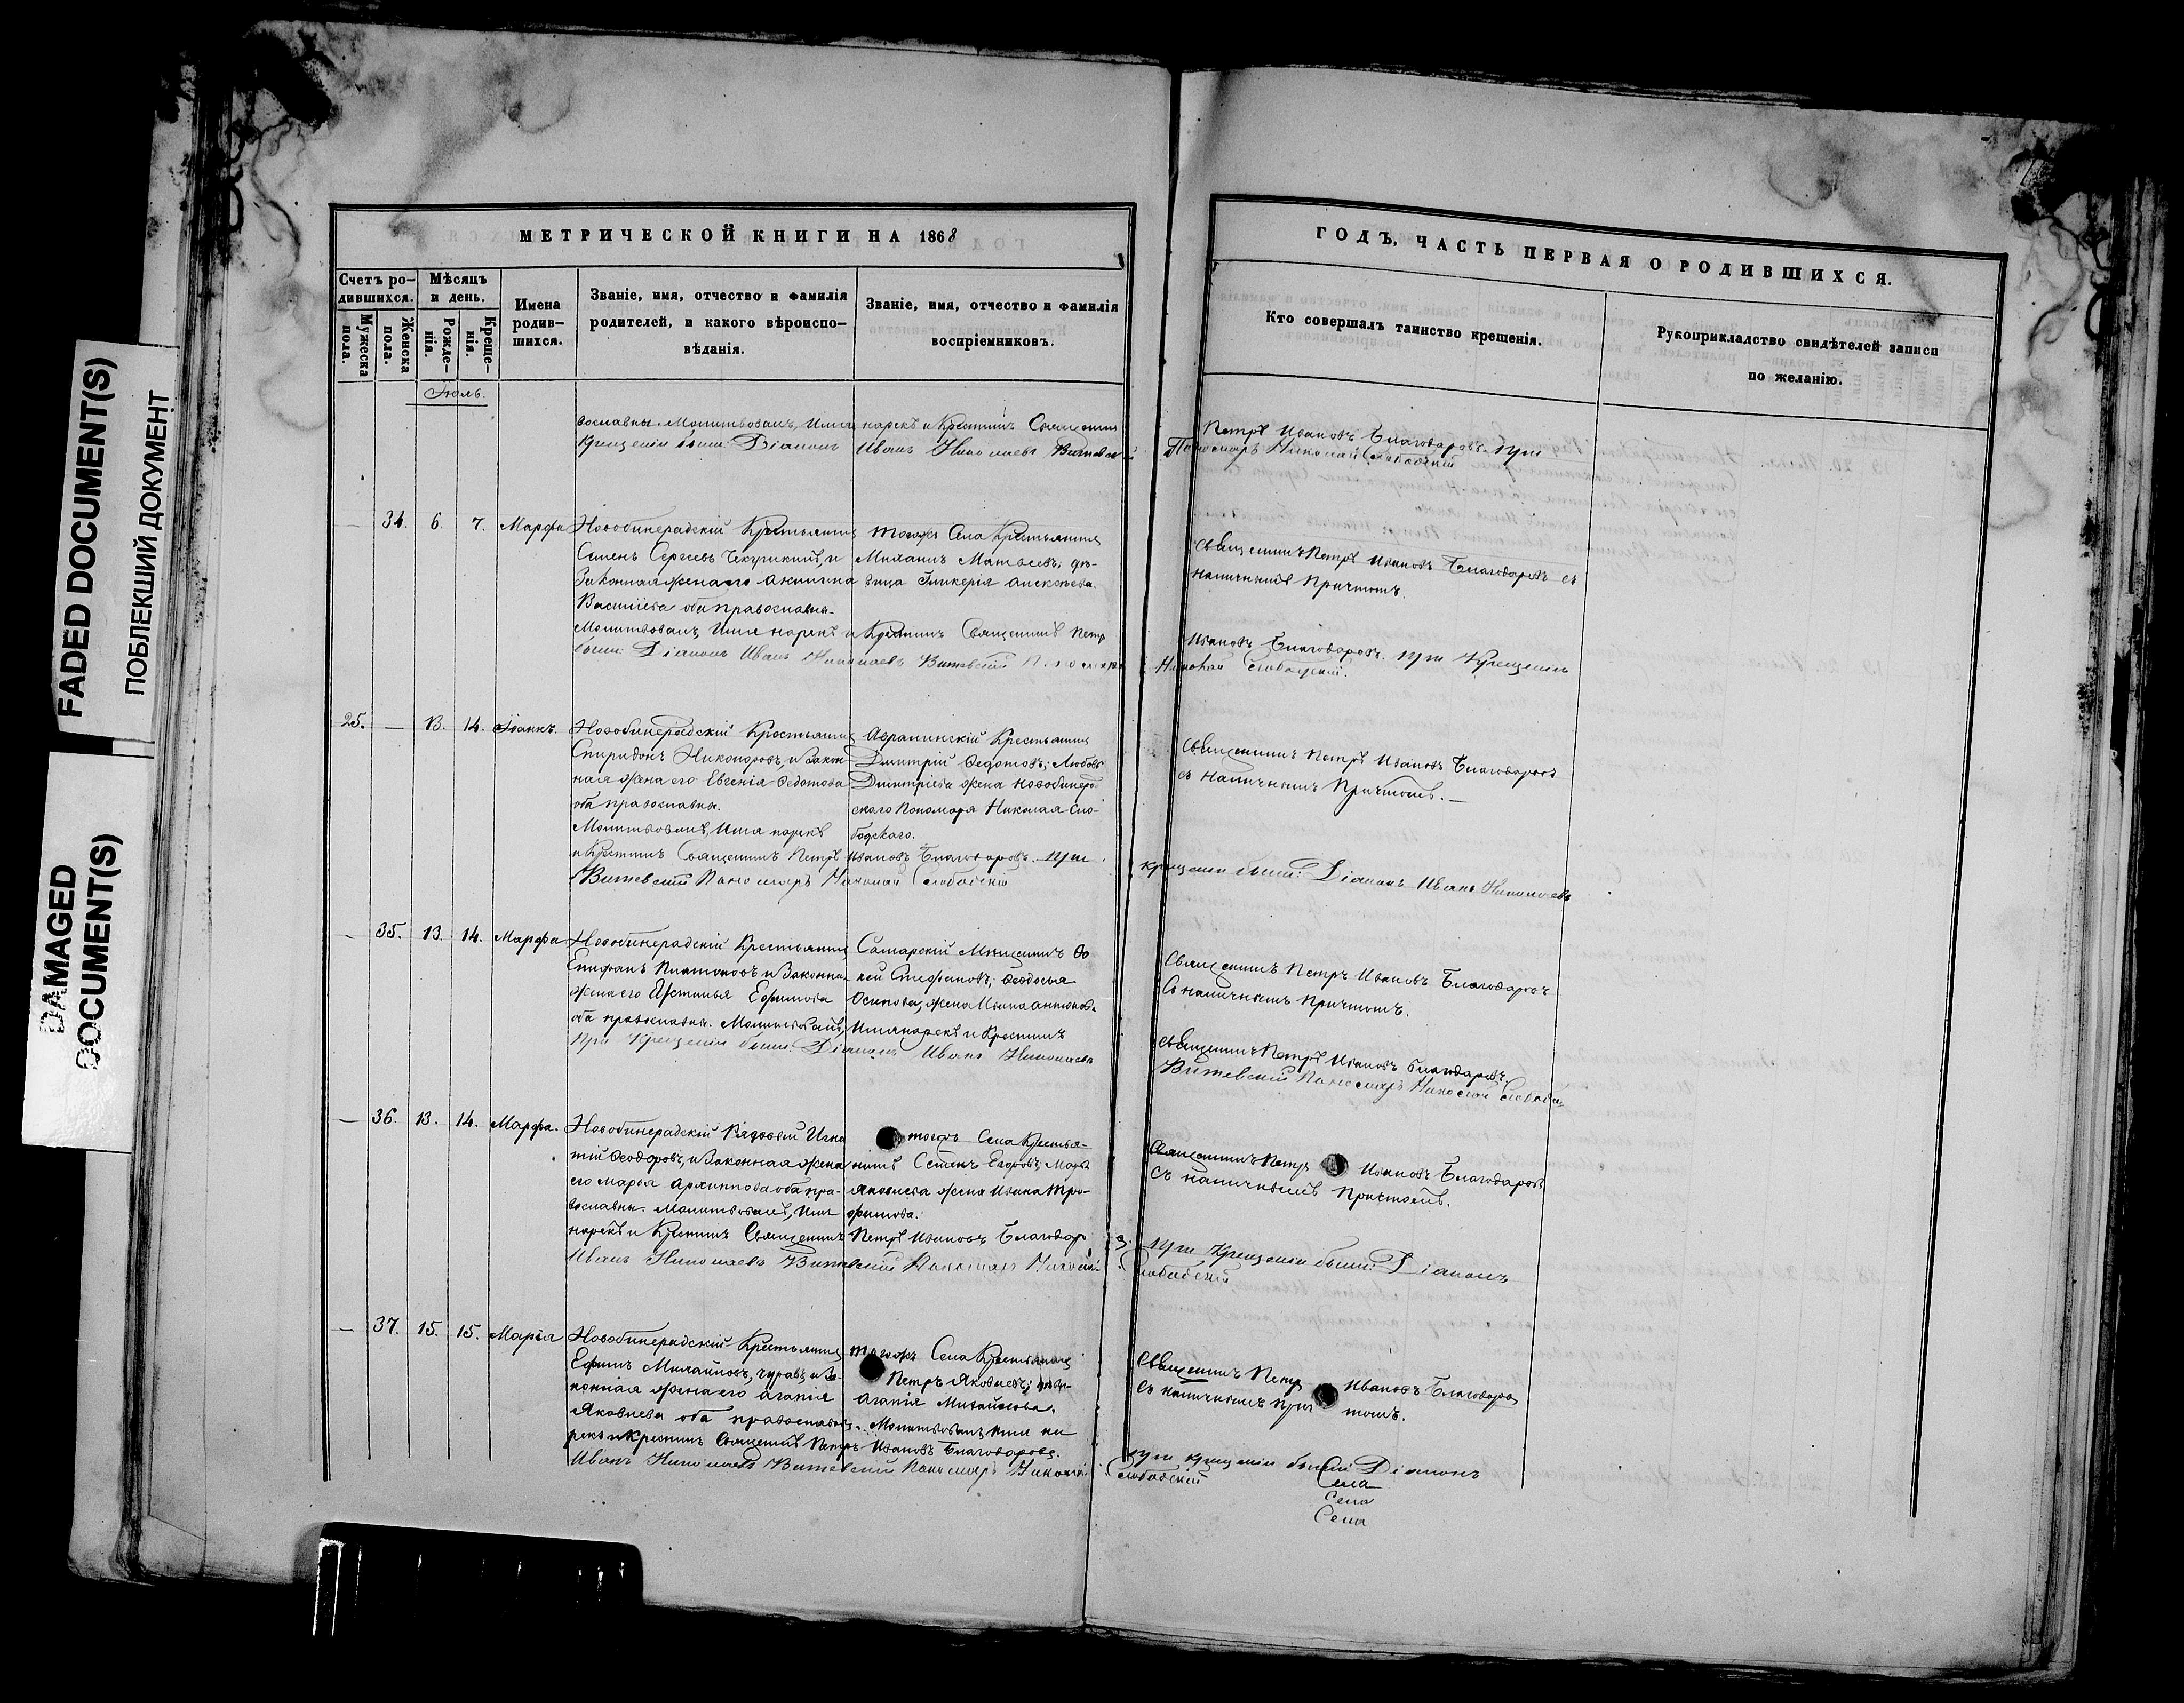 FADED DOCUMENT(S)
ПОБЛЕКШИЙ ДОКУМЕНТ
DAMAGED
DOCUMENT(S)
МЕТРИЧЕСКОЙ КНИГИ НА 1868
Счетъ ро-
дившихся.
Мужеска
пола.
Женска
пола.
Мѣсяцъ
и день.
Рожде-
нія.
Креще-
нія.
Имена
родив-
шихся.
Званіе, имя, отчество и фамилія
родителей, и какого вѣроиспо-
вѣданія.
Званіе, имя, отчество и фамилія
воспріемниковъ.
Іюль.
вославны. Молитвовалъ, Имя нарекъ и Крестилъ Священникъ
Крещеніи были: Діаконъ Иванъ Николаевъ Витевскій
— 34. 6. 7. Марфа
Новобинерадскій Крестьянинъ
Семенъ Сергеевъ и
Законная жена его Акилина
Васильева оба православны.
Молитвовалъ, Имя нарекъ и Крестилъ Священникъ Петръ
были: Діаконъ Иванъ Николаевъ Витевскій Пономарь
тогожъ Села Крестьянинъ
Михаилъ Матвеевъ; дѣ-
вица Гликерія Алексѣева.
25. — 13. 14. Іоаннъ.
Новобинерадскій Крестьянинъ
Спиридонъ Никоноровъ, и Закон-
ная жена его Евгенія Федотова
оба православны.
Молитвовалъ, Имя нарекъ
и Крестилъ Священникъ Петръ Ивановъ Благодаровъ. при
Витевскій Пономарь Николай Слободскій
Крестьянинъ
Дмитрій Федотовъ; Любовь
Дмитріева жена Новобинерад
скаго Пономаря Николая Сло-
бодскаго.
— 35. 13. 14. Марфа
Новобинерадскій Крестьянинъ
Епифанъ Платоновъ и Законная
жена его Устинья Ефимова
оба православны. Молитвовалъ, Имя нарекъ и Крестилъ
При Крещеніи были: Діаконъ Иванъ Николаевъ
Самарскій Мѣщанинъ
Стефановъ; Феодосья
Осипова, жена Ивана Антонова.
— 36. 13. 14. Марфа.
Новобинерадскій Рядовой Игна
тій Феодоровъ, и Законная жена
его Марья Архиппова оба пра-
вославны. Молитвовалъ, Имя
нарекъ и Крестилъ Священникъ Петръ Ивановъ Благодаро
Иванъ Николаевъ Витевскій Пономарь Николай
тогожъ Села Крестья-
нинъ Семенъ Егоровъ; Марья
Яковлева жена Ивана Тро-
фимова.
— 37. 15. 15. Марія
Новобинерадскій Крестьянинъ
Ефимъ Михайловъ, и За-
конная жена его Агапія
Яковлева оба православны. Молитвовалъ, Имя на
рекъ и Крестилъ Священникъ Петръ Ивановъ Благодаровъ.
Иванъ Николаевъ Витевскій Пономарь Николай
тогожъ Села Крестьянинъ
Петръ Яковлевъ;
Агапія Михайлова.
ГОДЪ, ЧАСТЬ ПЕРВАЯ О РОДИВШИХСЯ.
Кто совершалъ таинство крещенія.
Рукоприкладство свидѣтелей записи
по желанію.
Петръ Ивановъ Благодаровъ. при
Пономарь Николай Слободскій
Священникъ Петръ Ивановъ Благодаровъ съ
наличнымъ Причтомъ.
Ивановъ Благодаровъ. при Крещеніи
Николай Слободскій.
Священникъ Петръ Ивановъ Благодаровъ
съ наличнымъ Причтомъ. —
крещеніи были: Діаконъ Иванъ Николаевъ
Священникъ Петръ Ивановъ Благодаровъ
Съ наличнымъ Причтомъ.
Священникъ Петръ Ивановъ Благодаровъ.
Витевскій Пономарь Николай
Священникъ Петръ Ивановъ Благодаровъ
Съ наличнымъ Причтомъ.
при Крещеніи были: Діаконъ
Слободскій
Священникъ Петръ Ивановъ Благодаровъ
Съ наличнымъ Причтомъ.
при крещеніи были Діаконъ
Слободскій
Села
Села
Села